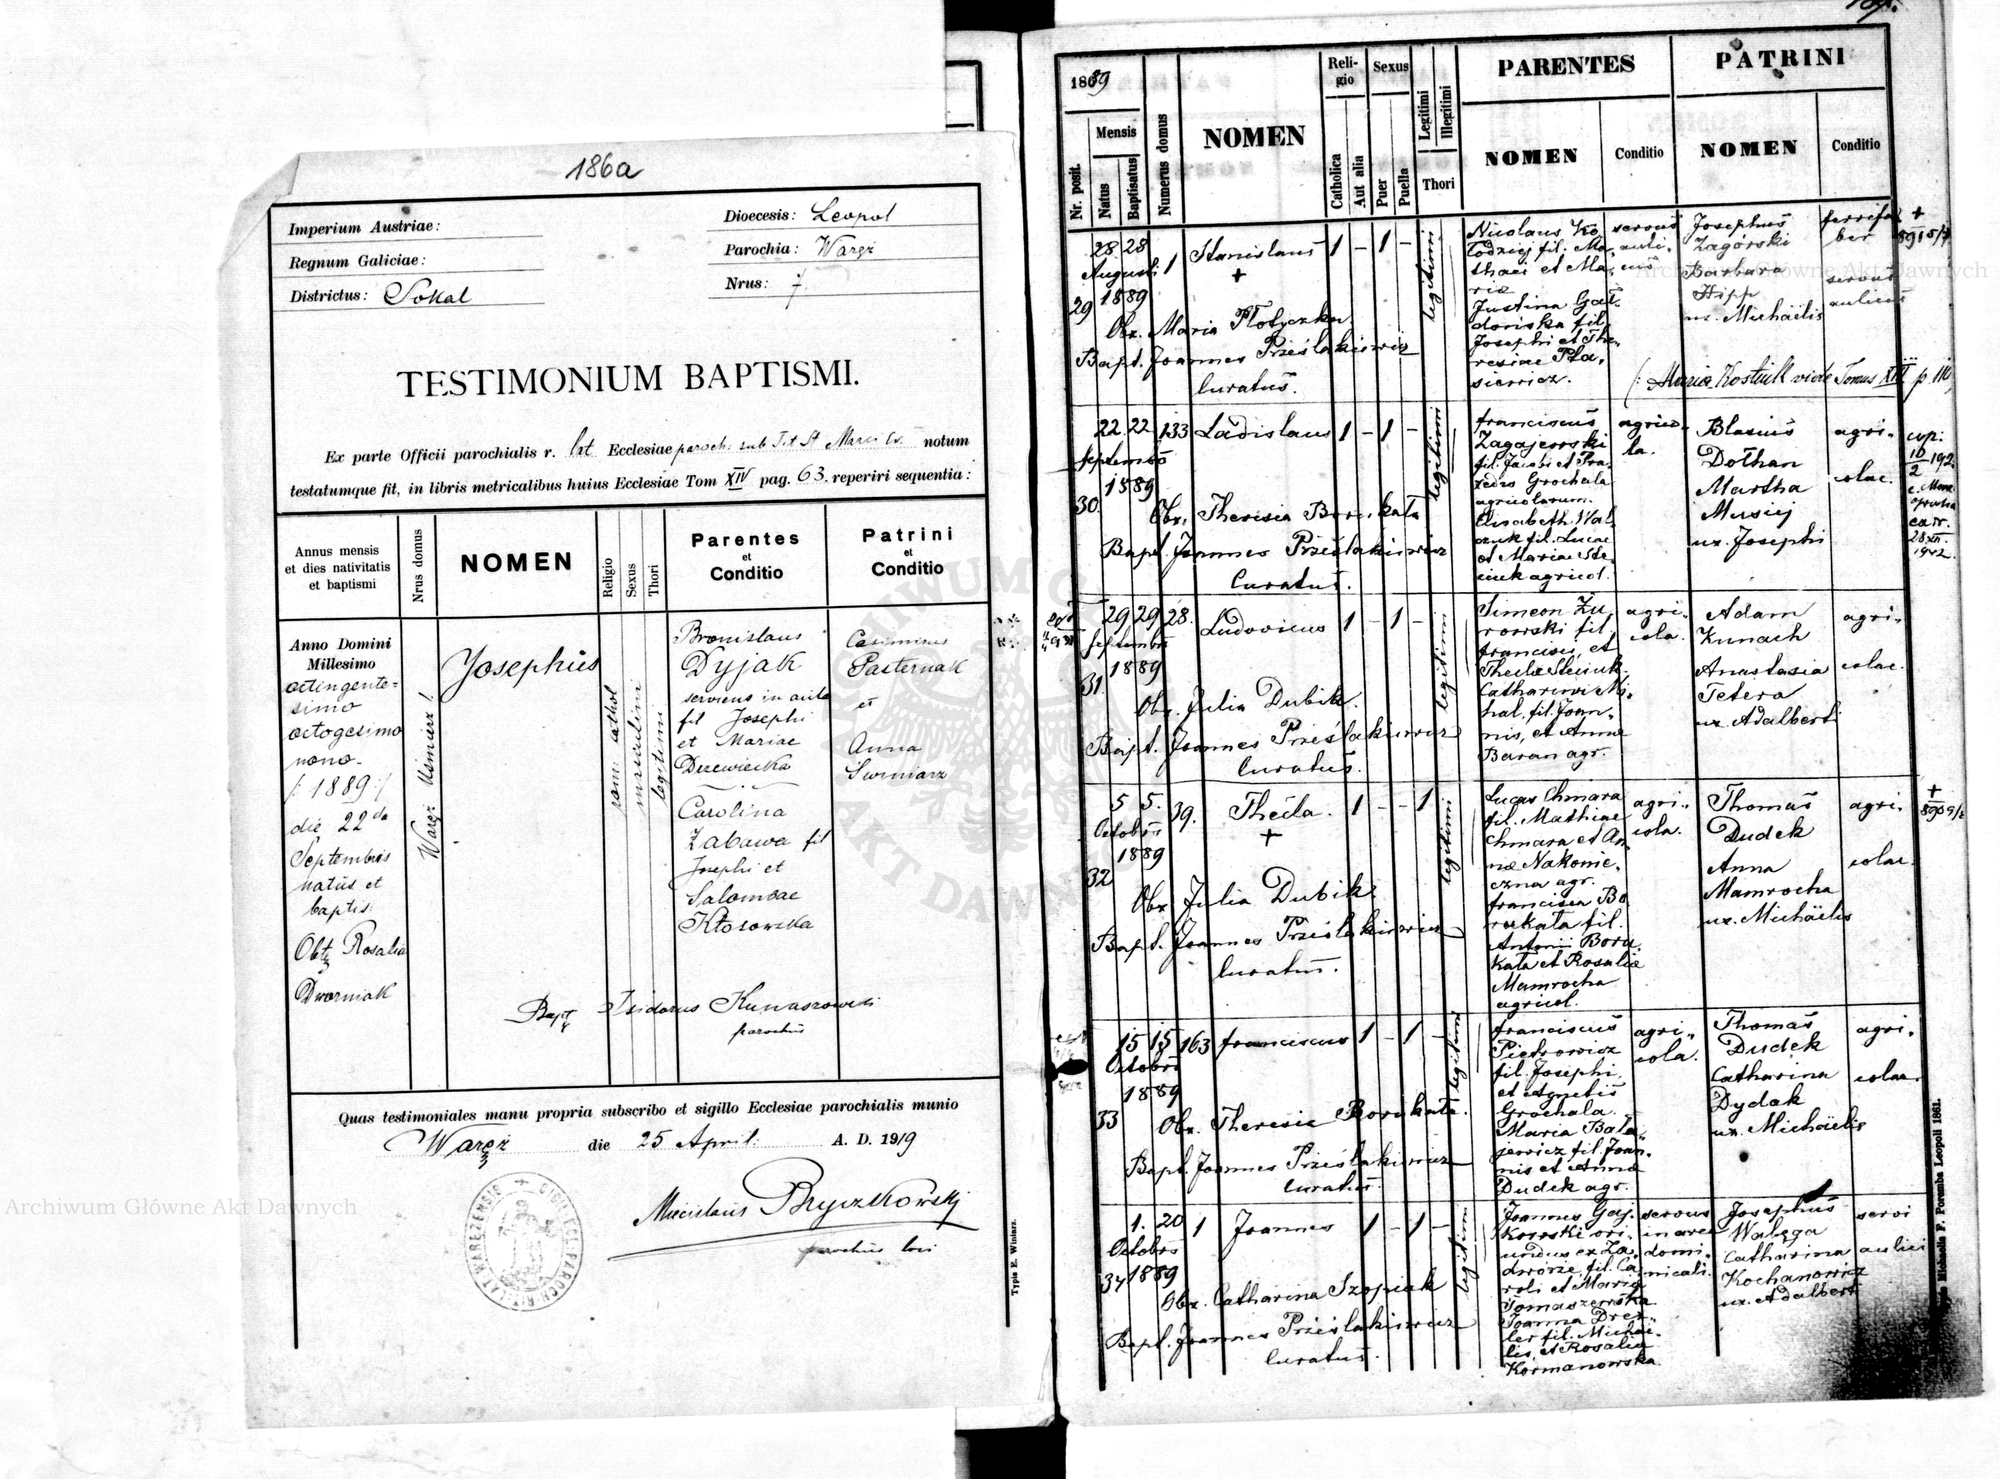 186a
Imperium Austriae:
Regnum Galiciae:
Districtus: Sokal
Dioecesis: Leopol
Parochia: Waręż
Nrus: 7
TESTIMONIUM BAPTISMI.
Ex parte Officii parochialis r. lat Ecclesiae paroch. sub Tit St Marci Ev. notum
testatumque fit, in libris metricalibus huius Ecclesiae Tom XIV pag. 63. reperiri sequentia:
Annus mensis
et dies nativitatis
et baptismi
Nrus domus
NOMEN
Religio
Sexus
Thori
Parentes
et
Conditio
Patrini
et
Conditio
Anno Domini
Millesimo
octingente=
simo
octogesimo
nono-
/:1889:/
die 22da
Septembris
natus et
baptis:
Obtz Rosalia
Dworniak
Waręż
1.
Josephus
rom: cathol
masculini
legitimi
Bronislaus
Dyjak
serviens in aula
fil Josephi
et Mariae
Drzewiecka
Carolina
Zabawa fil
Josephi et
Salomeae
Kłosowska
Casimirus
Pasternak
et
Anna
Swiniarz
Bapt Isidorus Kunaszowski
parochus
Quas testimoniales manu propria subscribo et sigillo Ecclesiae parochialis munio
Waręż die 25 April. A. D. 1919
Miecislaus Bryczkowski
parochus loci
Typis E. Winiarz.
1889
Nr. posit.
Mensis
Natus
Baptisatus
Numerus domus
NOMEN
Religio
Catholica
Aut alia
Sexus
Puer
Puella
Legitimi
Illegitimi
Thori
PARENTES
NOMEN
Conditio
PATRINI
NOMEN
Conditio
29
28 28
Augusti
1889
1
Stanislaus
+
1 - 1 -
legitimi
Obx. Maria Płotyczka
Bapt. Joannes Prześlakiewicz
Curatus.
Nicolaus Ko
łodziej fil. Ma,
thaei et Ma,
riae
Justina Gał
doriska fil.
Josephi et The,
resiae Pta,
siewicz.
servus
auli,
cus
Josephus
Zagórski
Barbara
Hipp
ux. Michaëlis
ferrifa,
ber
servus
aulicus
(: Maria Kostiuk vide Tomus XIII p. 110
30.
22. 22
Septembris
1889
133
Ladislaus
1 - 1 -
legitimi
Obx. Theresia Borukata
Bapt. Joannes Prześlakiewicz
Curatus.
Franciscus
Zagajewski
fil. Jacobi et Pra,
xedis Grochala
agricolarum.
Elisabeth Wal
czuk fil. Lucae
et Mariae Ste
ciuk agricol.
agrico,
la.
Blasius
Dothan
Martha
Musij
ux. Josephi
agri,
colae.
31.
29 29
Septembris
1889
28.
Ludovicus
1 - 1 -
legitimi
Obx. Julia Dubik.
Bapt. Joannes Prześlakiewicz
Curatus.
Simeon Żu,
rowski fil.
Francisci, et
Joan,
nis, et Annae
Baran agr.
agri,
cola.
Adam
Kunach
Anastasia
Tetera
ux. Adalberti
agri,
colae.
32
5 5.
Octobris
1889
39.
Thecla.
+
1 - - 1
legitimi
Obx Julia Dubik
Bapt. Joannes Prześlakiewicz
Curatus.
Lucas Chmara
fil. Mathiae
Chmara et An,
nae Nakonie,
czna agr.
Francisca Bo
rukata fil.
Antonii Boru,
kata et Rosaliae
Mamrocha
agricol.
agri,
cola.
Thomas
Dudek
Anna
Mamrocha
ux. Michaëlis
agri,
colae.
33
15 15
Octobris
1889
163
Franciscus
1 - 1 -
legitimi
Obx. Theresia Borukata.
Bapt. Joannes Prześlakiewicz
Curatus.
Franciscus
Pietrowicz
fil. Josephi,
et Agnetis
Grochala.
Maria Bała,
jewicz fil. Joan,
nis et Annae
Dudek agr.
agri,
cola.
Thomas
Dudek
Catharina
Dydak
ux. Michaëlis
agri,
colae.
34
1. 20
Octobris
1889
1
Joannes
1 - 1 -
legitimi
Obx. Catharina Szopiak
Bapt. Joannes Prześlakiewicz
Curatus.
Joannes Gaj,
kowski ori,
undus ex Za,
dwórze fil. Ca,
roli et Mariae
Tomaszewska
Joanna Drex,
ler fil. Michae,
lis, et Rosaliae
Kormanowska
servus
in area
domi,
nicali.
Josephus
Wałęga
Catharina
Kochanowicz
ux. Adalberti
servi
aulici
Michaelis F. Poremba Leopoli 1861.
Archiwum Główne Akt Dawnych
Archiwum Główne Akt Dawnych
ARCHIWUM GŁÓWNE AKT DAWNYCH